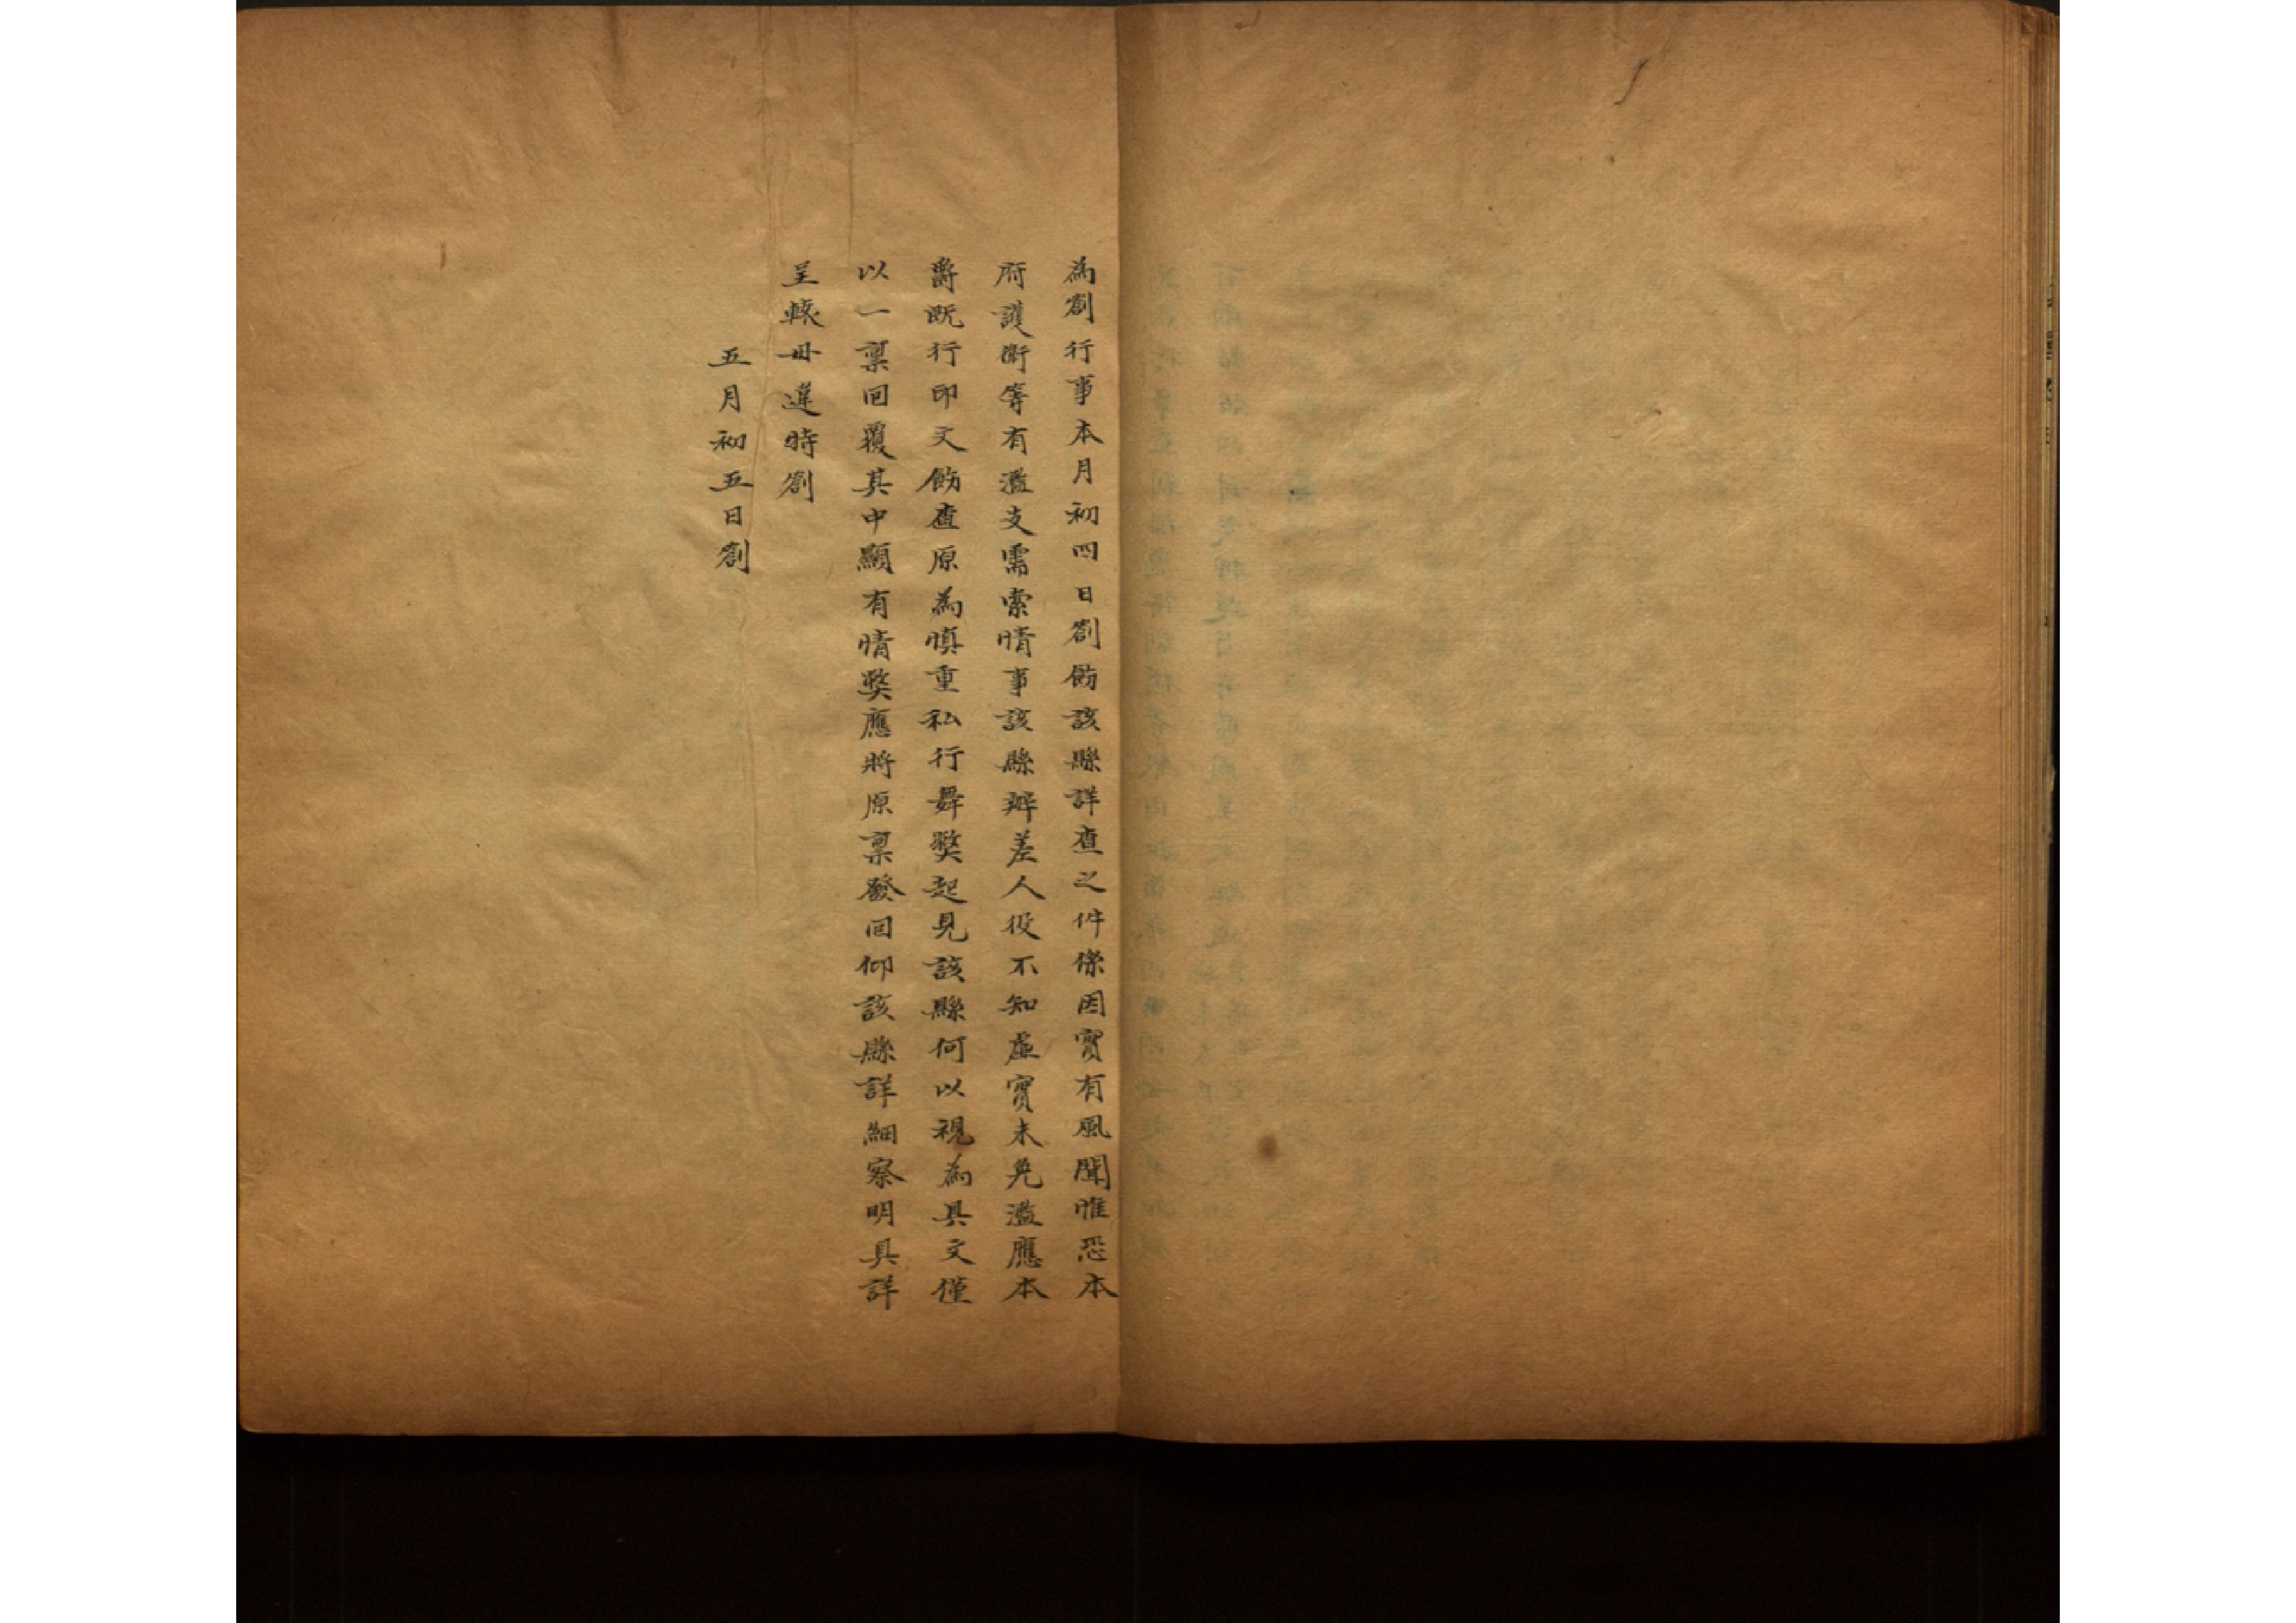 為劄行事本月初四日劄飭該縣詳查之件係因實有風聞惟恐本
府護衛等有濫支需索情事該縣辦差人役不知虛實未免濫應本
爵既行印文飭查原為慎重私行舞獘起見該縣何以視為具文僅
以一稟囬覆其中顯有情獘應將原稟發囬仰該縣詳細察明具詳
呈轅毋違時劄
五月初五日劄